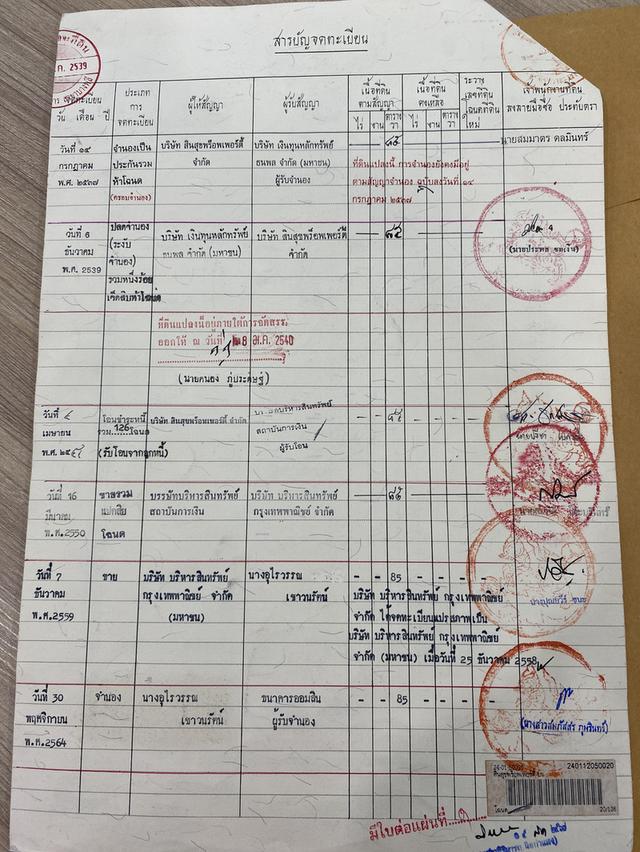 สารบัญจดทะเบียน
ค. 2539
จดทะเบียน
วัน เดือน ปี
ประเภท
การ
จดทะเบียน
ผู้ให้สัญญา
ผู้รับสัญญา
เนื้อที่ดิน
ตามสัญญา
ไร่ งาน ตาราง
วา
เนื้อที่ดิน
คงเหลือ
ไร่ งาน ตาราง
วา
ระวาง
เลขที่ดิน
โฉนดที่ดิน
ใหม่
เจ้าพนักงานที่ดิน
ลงลายมือชื่อ ประทับตรา
วันที่ ๑๔
กรกฎาคม
พ.ศ. ๒๕๓๗
จำนองเป็น
ประกันรวม
ห้าโฉนด
(ครอบจำนอง)
บริษัท สินสุขพร็อพเพอร์ตี้
จำกัด
บริษัท เงินทุนหลักทรัพย์
ธนพล จำกัด (มหาชน)
ผู้รับจำนอง
— ๘๕
ที่ดินแปลงนี้ การจำนองยังคงมีอยู่
ตามสัญญาจำนอง ฉบับลงวันที่ ๑๔
กรกฎาคม ๒๕๓๗
นายสมมาตร ดลมินทร์
วันที่ 6
ธันวาคม
พ.ศ. 2539
ปลดจำนอง
(ระงับ
จำนอง)
รวมหนึ่งร้อย
บริษัท เงินทุนหลักทรัพย์
ธนพล จำกัด (มหาชน)
บริษัท สินสุขพร็อพเพอร์ตี้
จำกัด
— ๘๕
ที่ดินแปลงนี้อยู่ภายใต้การจัดสรร
ออกให้ ณ วันที่ 8 ม.ค. 2540
(นายคนอง ภู่ประดิษฐ์)
วันที่
เมษายน
พ.ศ. ๒๕
โอนชำระหนี้
รวม 126 โฉนด
(รับโอนจากลูกหนี้)
บริษัท สินสุขพร็อพเพอร์ตี้ จำกัด
บรรษัทบริหารสินทรัพย์
สถาบันการเงิน
ผู้รับโอน
— ๘๕
วันที่ 16
มีนาคม
พ.ศ. 2550
ขายรวม
โฉนด
บรรษัทบริหารสินทรัพย์
สถาบันการเงิน
บริษัท บริหารสินทรัพย์
กรุงเทพพาณิชย์ จำกัด
— ๘๕
วันที่ 7
ธันวาคม
พ.ศ.2559
ขาย
บริษัท บริหารสินทรัพย์
กรุงเทพพาณิชย์ จำกัด
(มหาชน)
นางอุไรวรรณ
เชาวนรัตน์
- - 85 - - -
บริษัท บริหารสินทรัพย์ กรุงเทพพาณิชย์
จำกัด ได้จดทะเบียนแปรสภาพเป็น
บริษัท บริหารสินทรัพย์ กรุงเทพพาณิชย์
จำกัด (มหาชน) เมื่อวันที่ 25 ธันวาคม 2558
วันที่ 30
พฤศจิกายน
พ.ศ.2564
จำนอง
นางอุไรวรรณ
เชาวนรัตน์
ธนาคารออมสิน
ผู้รับจำนอง
- - 85 - - -
240112050020
โฉนด
20/126
มีใบต่อแผ่นที่